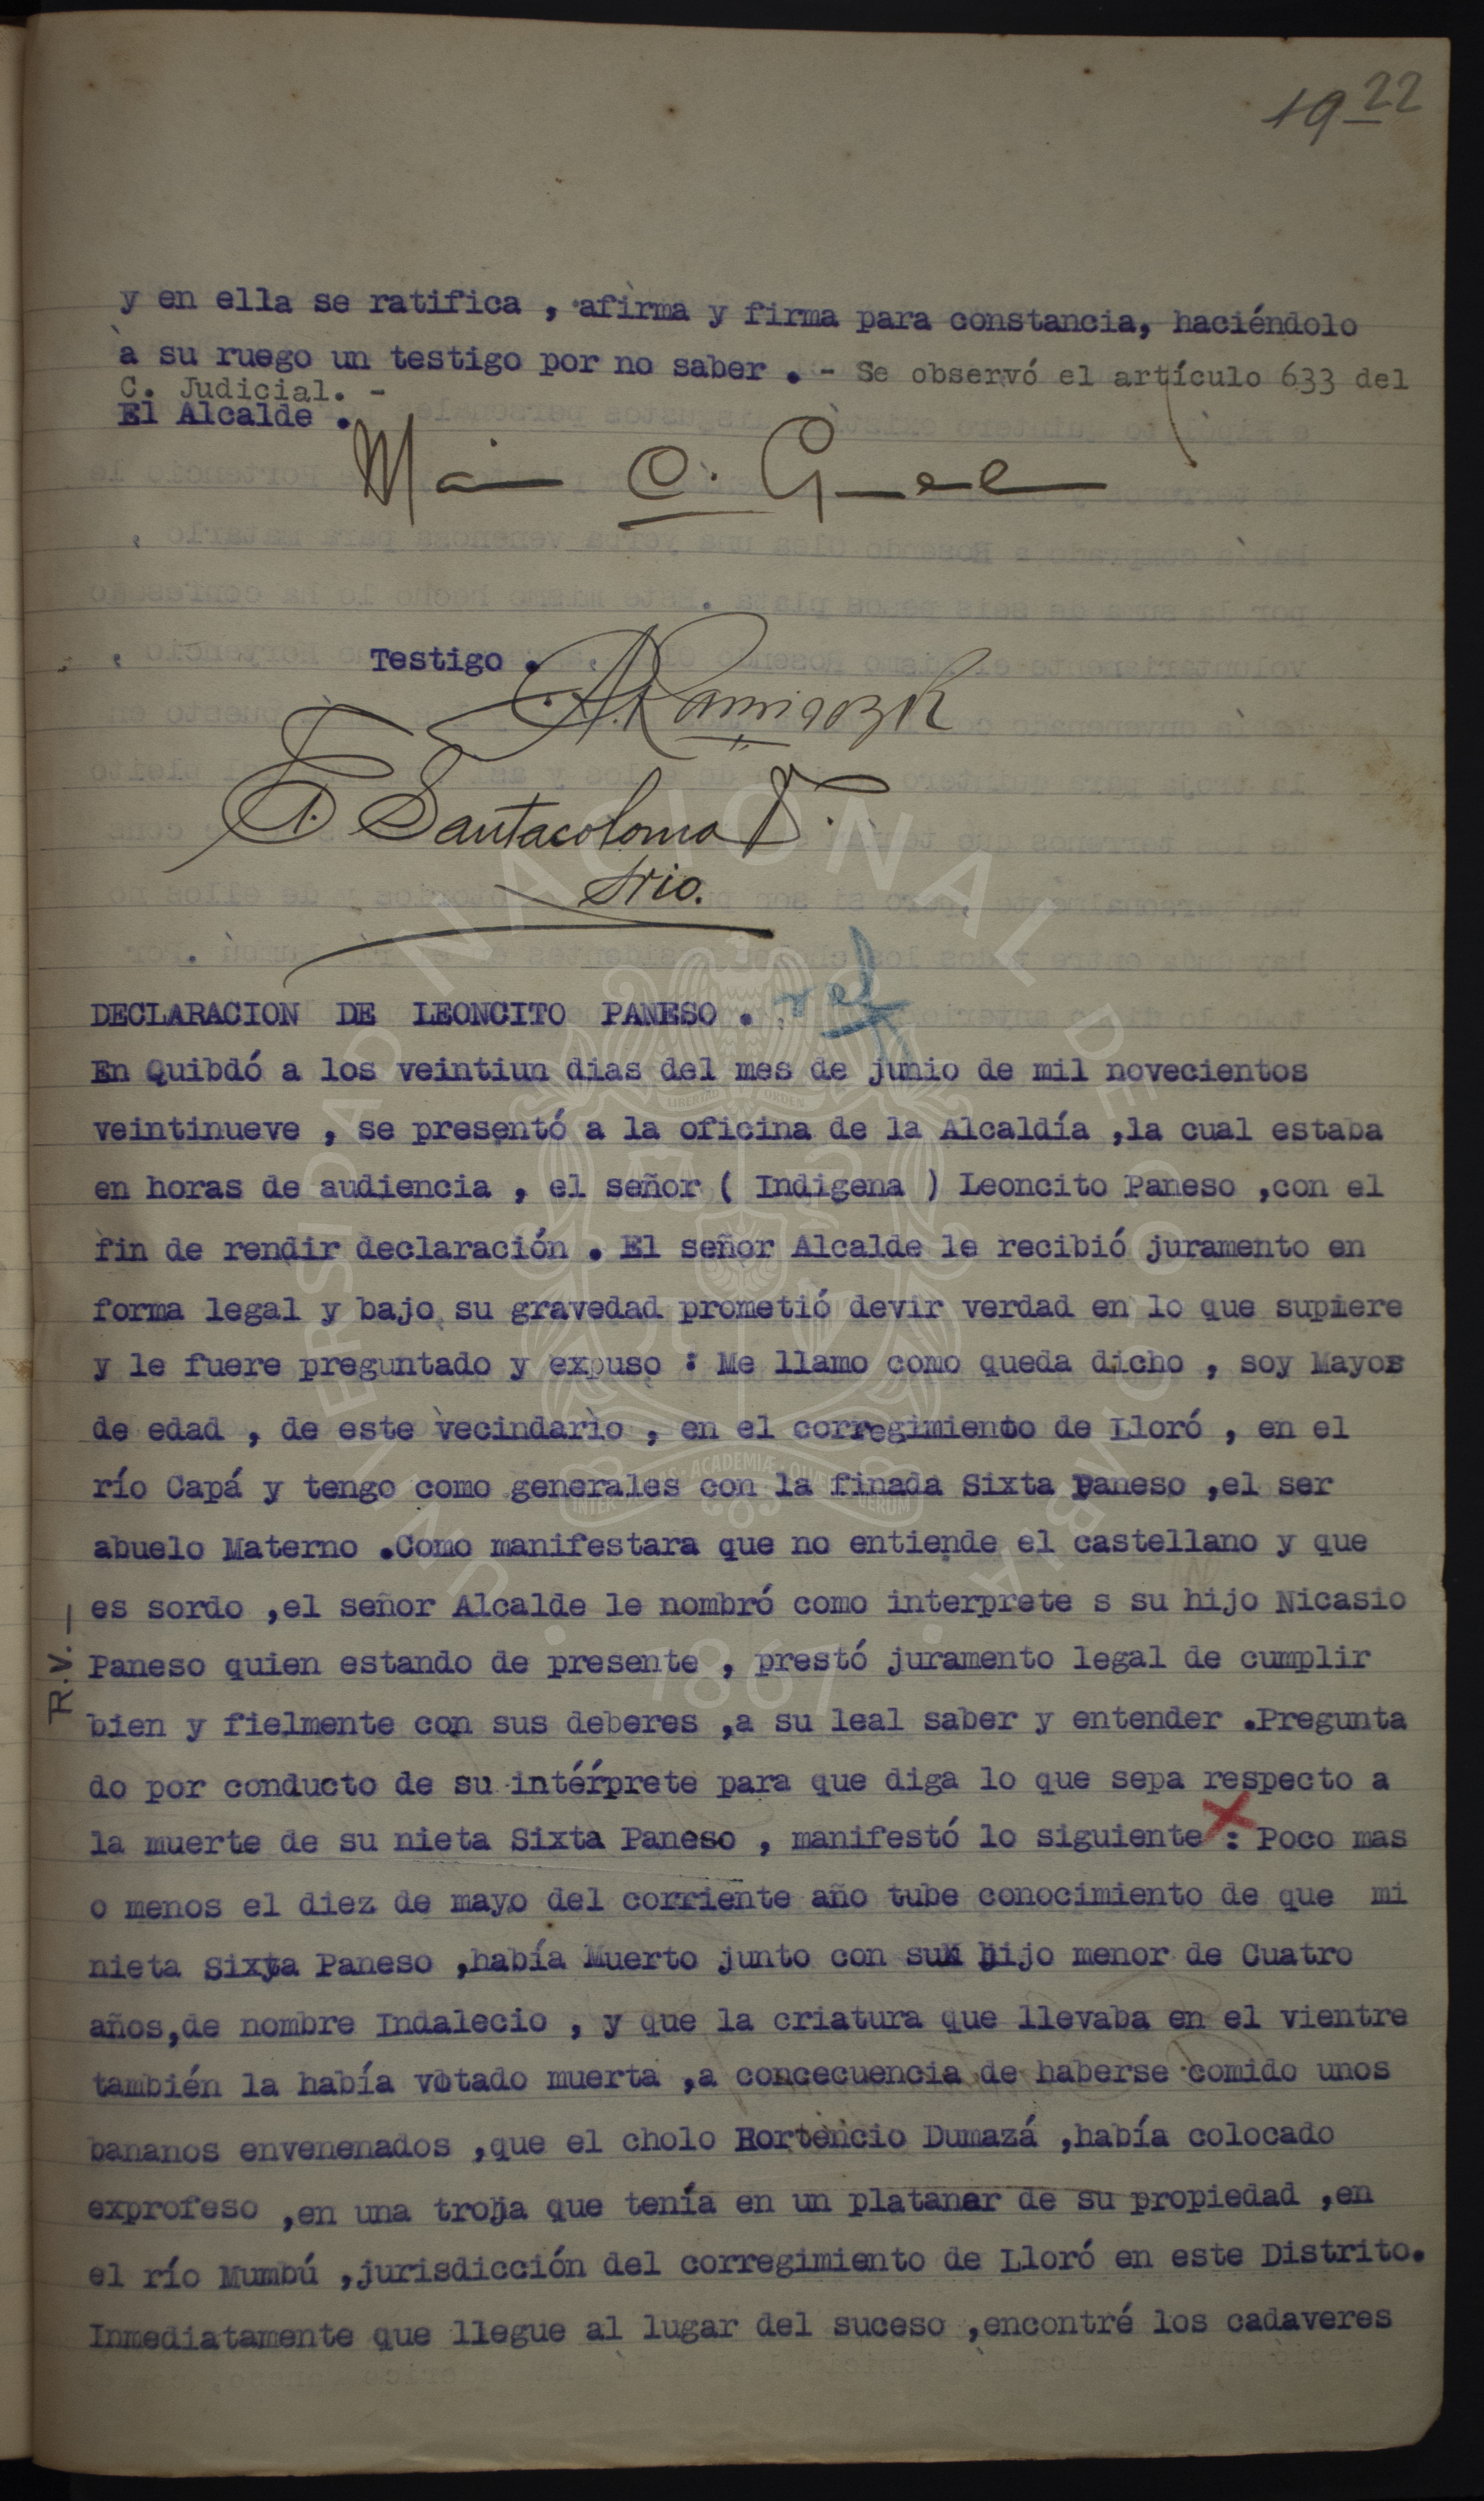 19 22
y en ella se ratifica , afirma y firma para constancia, haciéndolo
à su ruego un testigo por no saber . - Se observó el artículo 633 del
C. Judicial. -
El Alcalde .
Testigo .
A. Ramirez R
E. Santacoloma
Srio.
DECLARACION DE LEONCITO PANESO .
ref
En Quibdó a los veintiun dias del mes de junio de mil novecientos
veintinueve , se presentó a la oficina de la Alcaldía ,la cual estaba
en horas de audiencia , el señor ( Indigena ) Leoncito Paneso ,con el
fin de rendir declaración . El señor Alcalde le recibió juramento en
forma legal y bajo su gravedad prometió devir verdad en lo que supiere
y le fuere preguntado y expuso : Me llamo como queda dicho , soy Mayor
de edad , de este vecindario , en el corregimiento de Lloró , en el
río Capá y tengo como generales con la finada Sixta Paneso ,el ser
abuelo Materno .Como manifestara que no entiende el castellano y que
es sordo ,el señor Alcalde le nombró como interprete s su hijo Nicasio
Paneso quien estando de presente , prestó juramento legal de cumplir
bien y fielmente con sus deberes ,a su leal saber y entender .Pregunta
do por conducto de su intérprete para que diga lo que sepa respecto a
la muerte de su nieta Sixta Paneso , manifestó lo siguiente : Poco mas
o menos el diez de mayo del corriente año tube conocimiento de que mi
nieta Sixta Paneso ,había Muerto junto con su hijo menor de Cuatro
años,de nombre Indalecio , y que la criatura que llevaba en el vientre
también la había votado muerta ,a concecuencia de haberse comido unos
bananos envenenados ,que el cholo Hortencio Dumazá ,había colocado
exprofeso ,en una troja que tenía en un platanar de su propiedad ,en
el río Mumbú ,jurisdicción del corregimiento de Lloró en este Distrito.
Inmediatamente que llegue al lugar del suceso ,encontré los cadaveres
R.V.—
UNIVERSIDAD NACIONAL DE COLOMBIA
LIBERTAD Y ORDEN
INTER AULAS ACADEMIÆ QUÆRE VERUM
1867